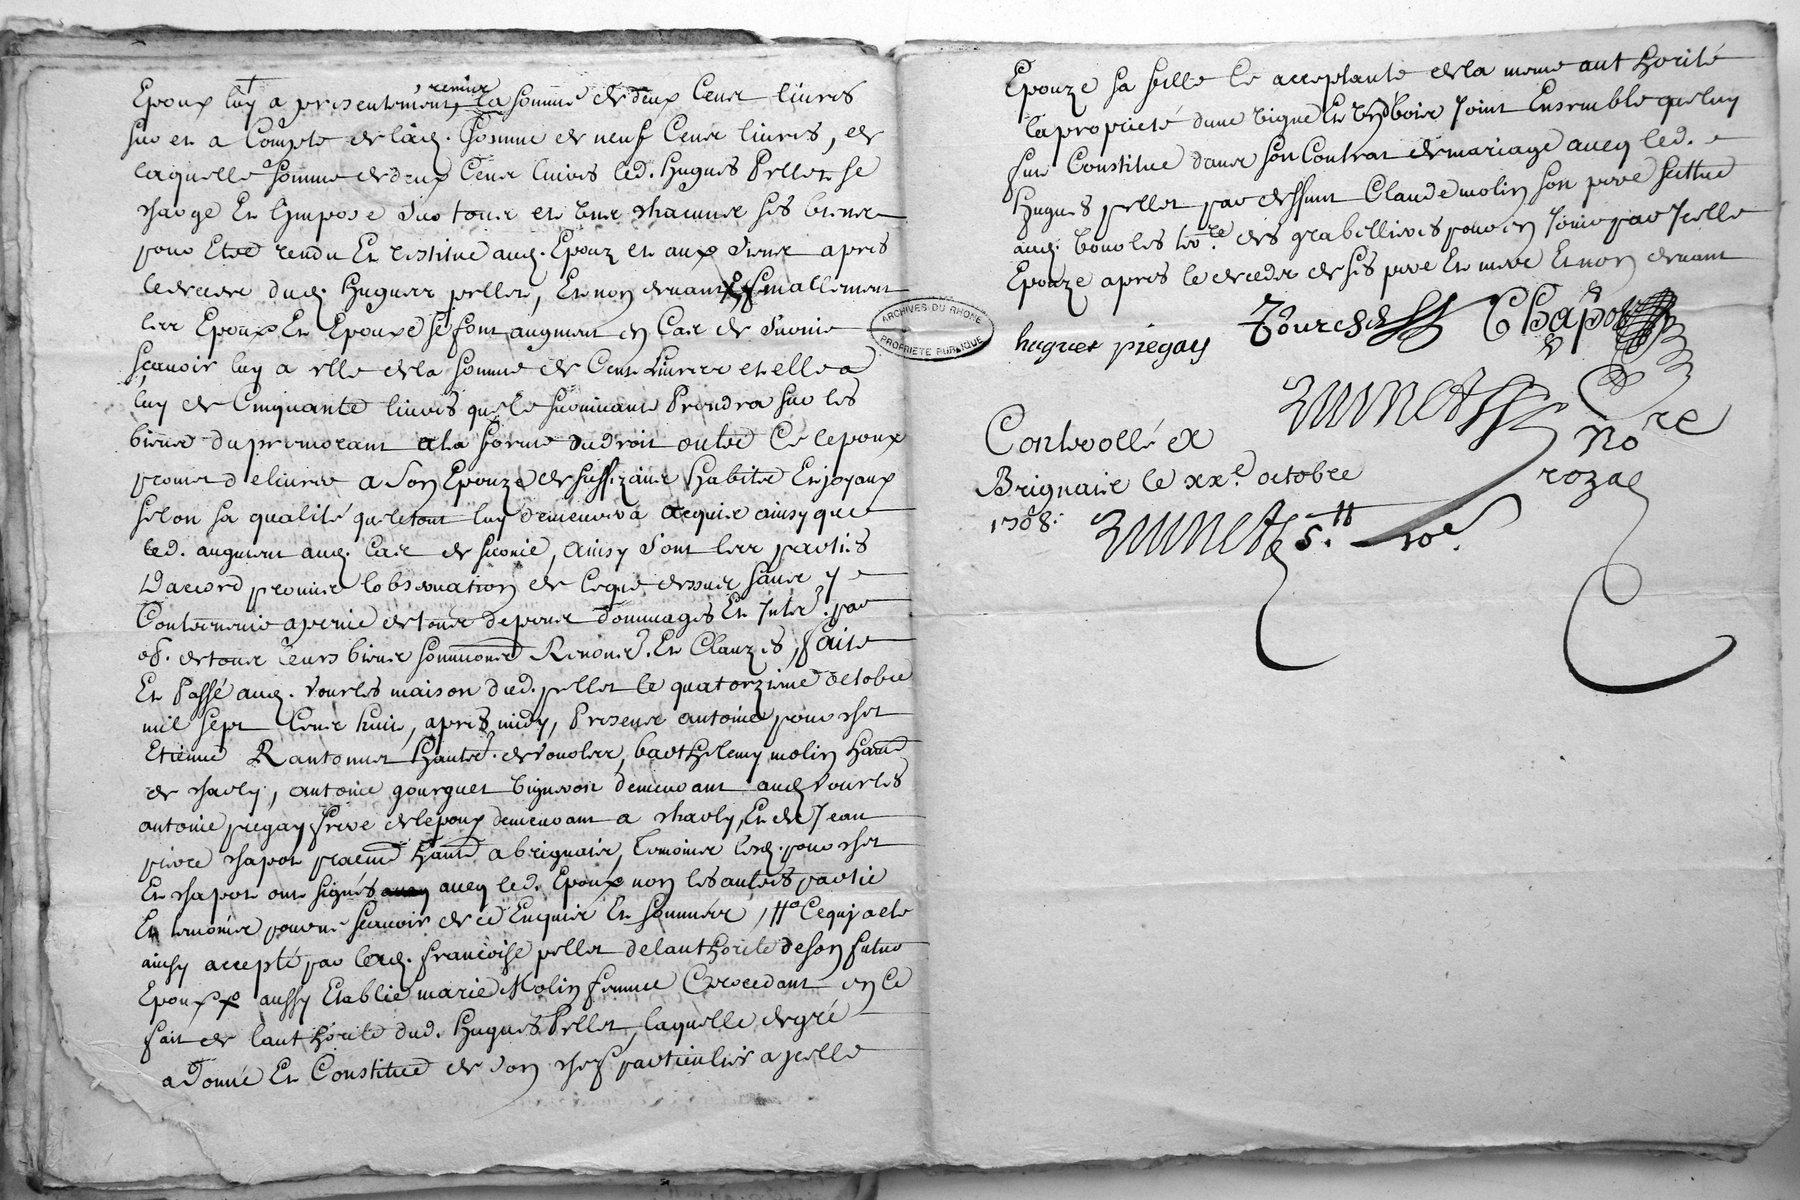 Epoux luy a presentement remise la somme de deux Cent livres
sur et a Compte de lad. somme de neuf Cent livres, de
laquelle somme de deux Cent livres led. hugues Pellet se
charge Et limpose sur tous et un chacuns ses biens
pour Etre rendu Et restitué aud. Epoux et aux siens apres
le deces dud. hugues pellet, Et non devant, finallement
les Epoux Et Epouze se font augment en Cas de survie
scavoir luy a elle de la somme de Cent livres et elle a
luy de Cinquante livres que le survivant Prendra sur les
biens du premourant a la forme du droit outre Ce lepoux
promet delivrer a son Epouze de suffizans habits Et joyaux
selon sa qualité que le tout luy demeurera acquis ainsy que
led. augment aud. Cas de survie, ainsy sont les parties
daccord promis lobservation de Ceque dessus sans y
Contrevenir a peine de tous depens dommages Et Inter. par
ob. de tous leurs biens soumions Renons. Et Clauzes, faite
Et Passé aud. vourles maison dud. pellet le quatorzieme octobre
mil sept Cent huit, apres midy, Presens antoine pourchet
Etienne Rantonnet habit. de vourles, barthelemy molin habt
de charly, antoine gourguet vigneron demeurant aud vourles
antoine piegay frere de lepoux demeurant a charly, Et de Jean
pierre chapot pratic habt a brignais, temoins lesd. pourchet
Et chapot ont signés avec led. Epoux non les autres partie
Et temoins pour ne scavoir de ce Enquis Et sommés, Cequi a ete
ainsy accepté par lad. francoise pellet de lauthorité de son futur
Epoux aussy Etablie marie Molin femme procedant en Ce
fait de lauthorité dud. hugues Pellet, laquelle de gré
a donné Et Constitué de son chef particulier a jcelle
Epouze sa fille Ce acceptante de la meme authorité
la proprieté dune vigne Et bois Joint Ensemble que luy
fut Constitué dans son Contrat de mariage avec led.
hugues pellet par deffunt Claude molin son pere sittué
aud. vourles terre des grabellieres pour en Jouir par Jcelle
Epouze apres le deceds de ses pere Et mere Et non devant
hugues piegay
Pourchet
Chapot
Brunet
nore
rozal
Controllé a
Brignais le xxe. octobre
1708.
Brunet